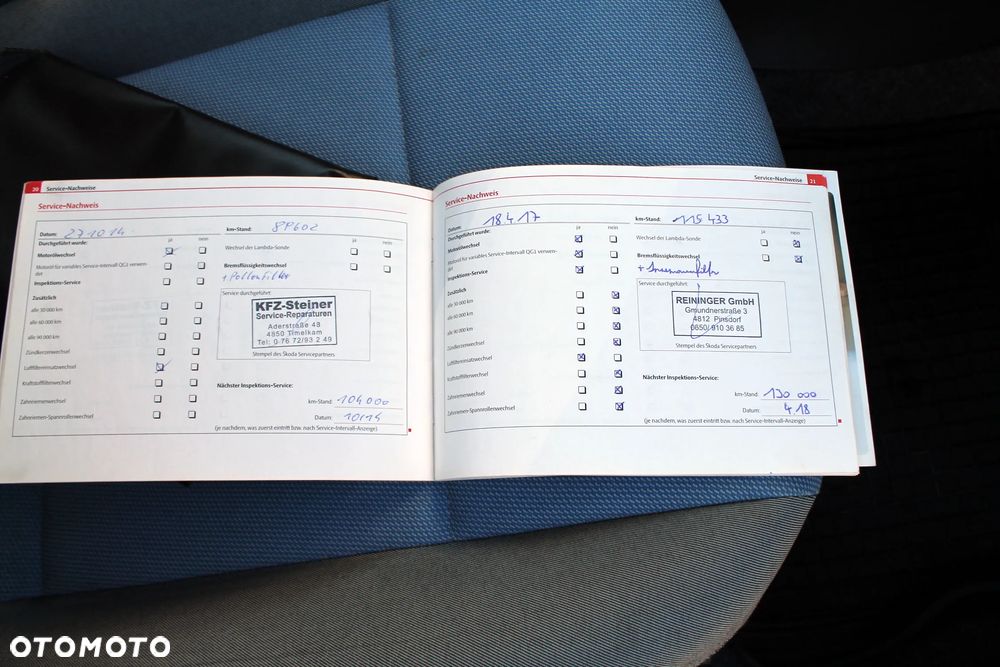 20 Service-Nachweise
Service-Nachweis
Datum: 27.10.14 km-Stand:
Durchgeführt wurde: ja nein
Motorölwechsel
Wechsel der Lambda-Sonde
Motoröl für variables Service-Intervall QG1 verwen-
det
Bremsflüssigkeitswechsel
+ Pollenfilter
Inspektions-Service
Service durchgeführt:
Zusätzlich
alle 30 000 km
alle 60 000 km
alle 90 000 km
Zündkerzenwechsel
Luftfiltereinsatzwechsel
Kraftstofffilterwechsel
Zahnriemenwechsel
Zahnriemen-Spannrollenwechsel
KFZ-Steiner
Service-Reparaturen
Aderstraße 48
4850 Timelkam
Tel: 0 76 72/93 2 49
Stempel des Škoda Servicepartners
Nächster Inspektions-Service:
km-Stand: 104 000
Datum: 10/15
(je nachdem, was zuerst eintritt bzw. nach Service-Intervall-Anzeige)
Service-Nachweise 21
Service-Nachweis
Datum: 18.4.17 km-Stand: 115 433
Durchgeführt wurde: ja nein
Motorölwechsel
Wechsel der Lambda-Sonde
ja nein
Motoröl für variables Service-Intervall QG1 verwen-
det
Bremsflüssigkeitswechsel
+ Innenraumfilter
Inspektions-Service
Service durchgeführt:
Zusätzlich
alle 30 000 km
alle 60 000 km
alle 90 000 km
Zündkerzenwechsel
Luftfiltereinsatzwechsel
Kraftstofffilterwechsel
Zahnriemenwechsel
Zahnriemen-Spannrollenwechsel
REININGER GmbH
Gmundnerstraße 3
4812 Pinsdorf
0650/ 910 36 85
Stempel des Škoda Servicepartners
Nächster Inspektions-Service:
km-Stand: 130 000
Datum: 4 18
(je nachdem, was zuerst eintritt bzw. nach Service-Intervall-Anzeige)
OTOMOTO